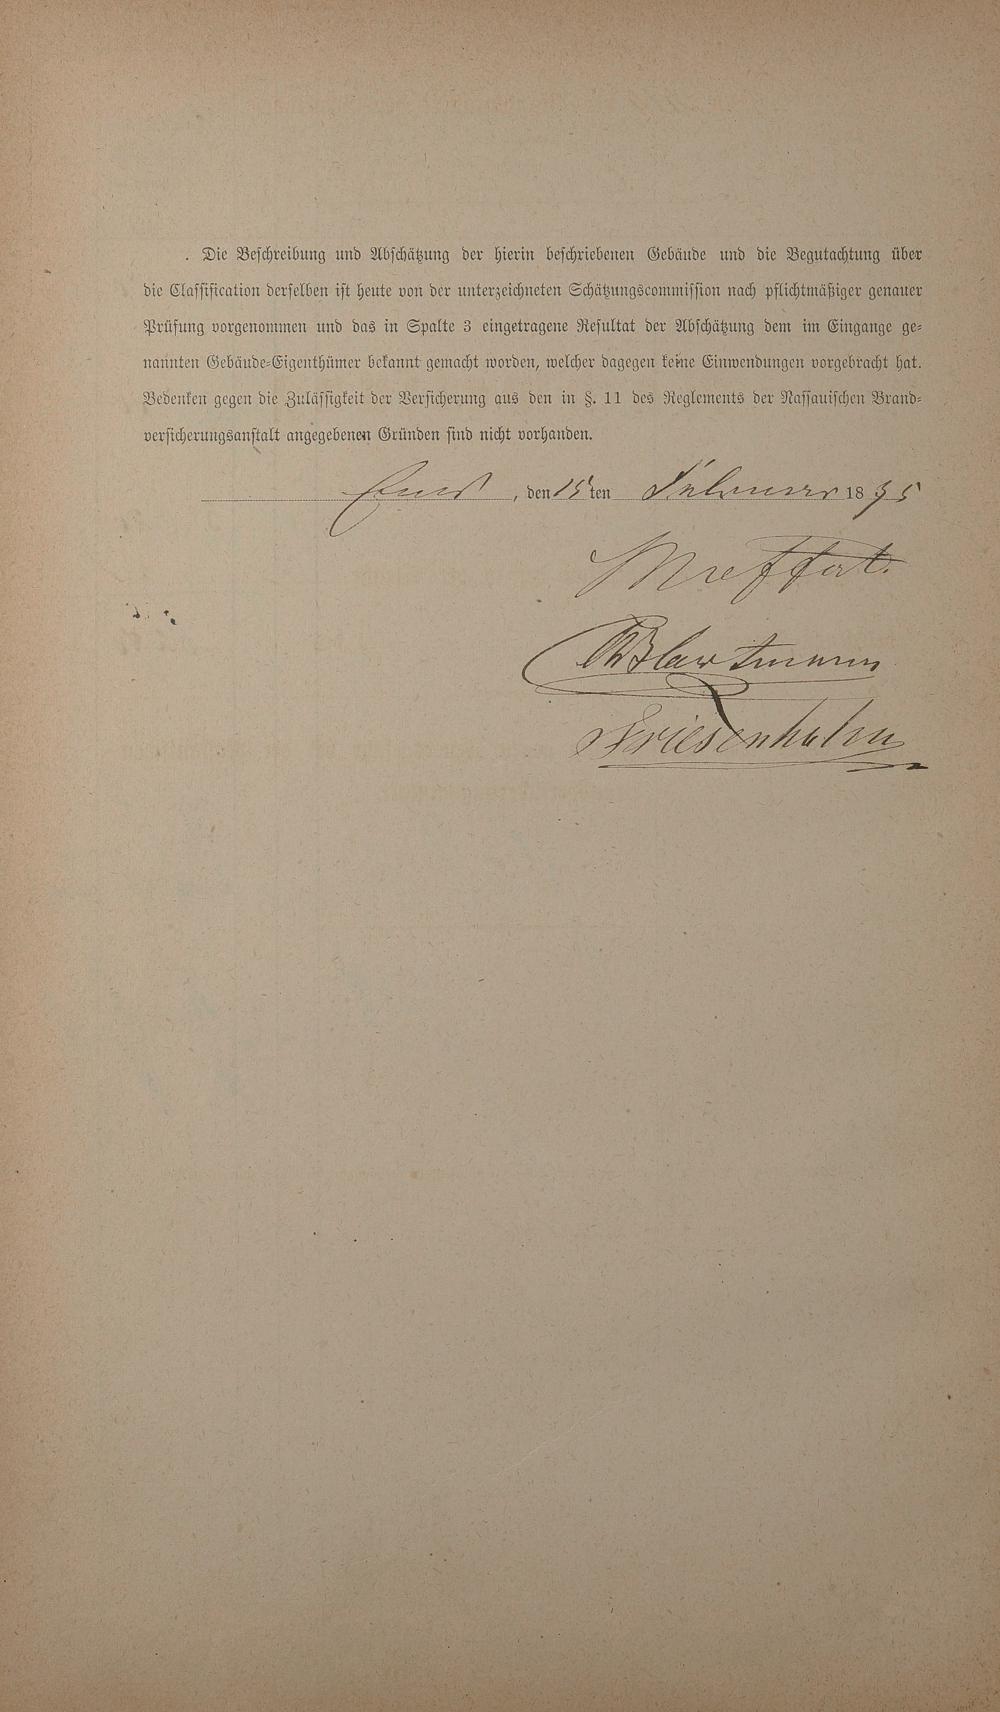 Die Beschreibung und Abschätzung der hierin beschriebenen Gebäude und die Begutachtung über
die Classification derselben ist heute von der unterzeichneten Schätzungscommission nach pflichtmäßiger genauer
Prüfung vorgenommen und das in Spalte 3 eingetragene Resultat der Abschätzung dem im Eingange ge-
nannten Gebäude-Eigenthümer bekannt gemacht worden, welcher dagegen keine Einwendungen vorgebracht hat.
Bedenken gegen die Zulässigkeit der Versicherung aus den in §. 11 des Reglements der Nassauischen Brand-
versicherungsanstalt angegebenen Gründen sind nicht vorhanden.
Ems, den 15ten Februar 18
Meffert.
Friesenhahn